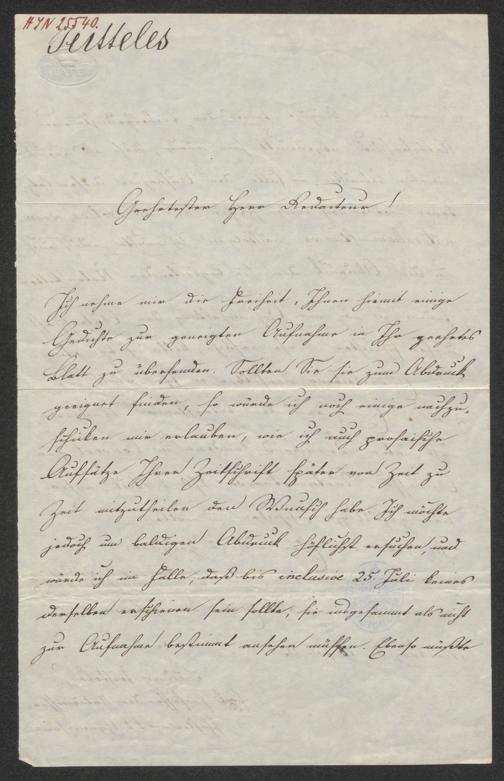 HIN 25540.
Jeitteles
Geehrtester Herr Redacteur!
Ich nehme mir die Freiheit, Ihnen hiemit einige
Gedichte zur geneigten Aufnahme in Ihr geehrtes
Blatt zu übersenden. Sollten Sie sie zum Abdruck
geeignet finden, so würde ich noch einige nachzu-
schicken mir erlauben, wie ich auch prosaische
Aufsätze Ihrer Zeitschrift später von Zeit zu
Zeit mitzutheilen den Wunsch habe. Ich möchte
jedoch um baldigen Abdruck höflichst ersuchen, und
würde ich im Falle, daß bis inclusive 25. Juli keines
derselben erschienen sein sollte, sie insgesammt als nicht
zur Aufnahme bestimmt ansehen müssen. Ebenso müßte